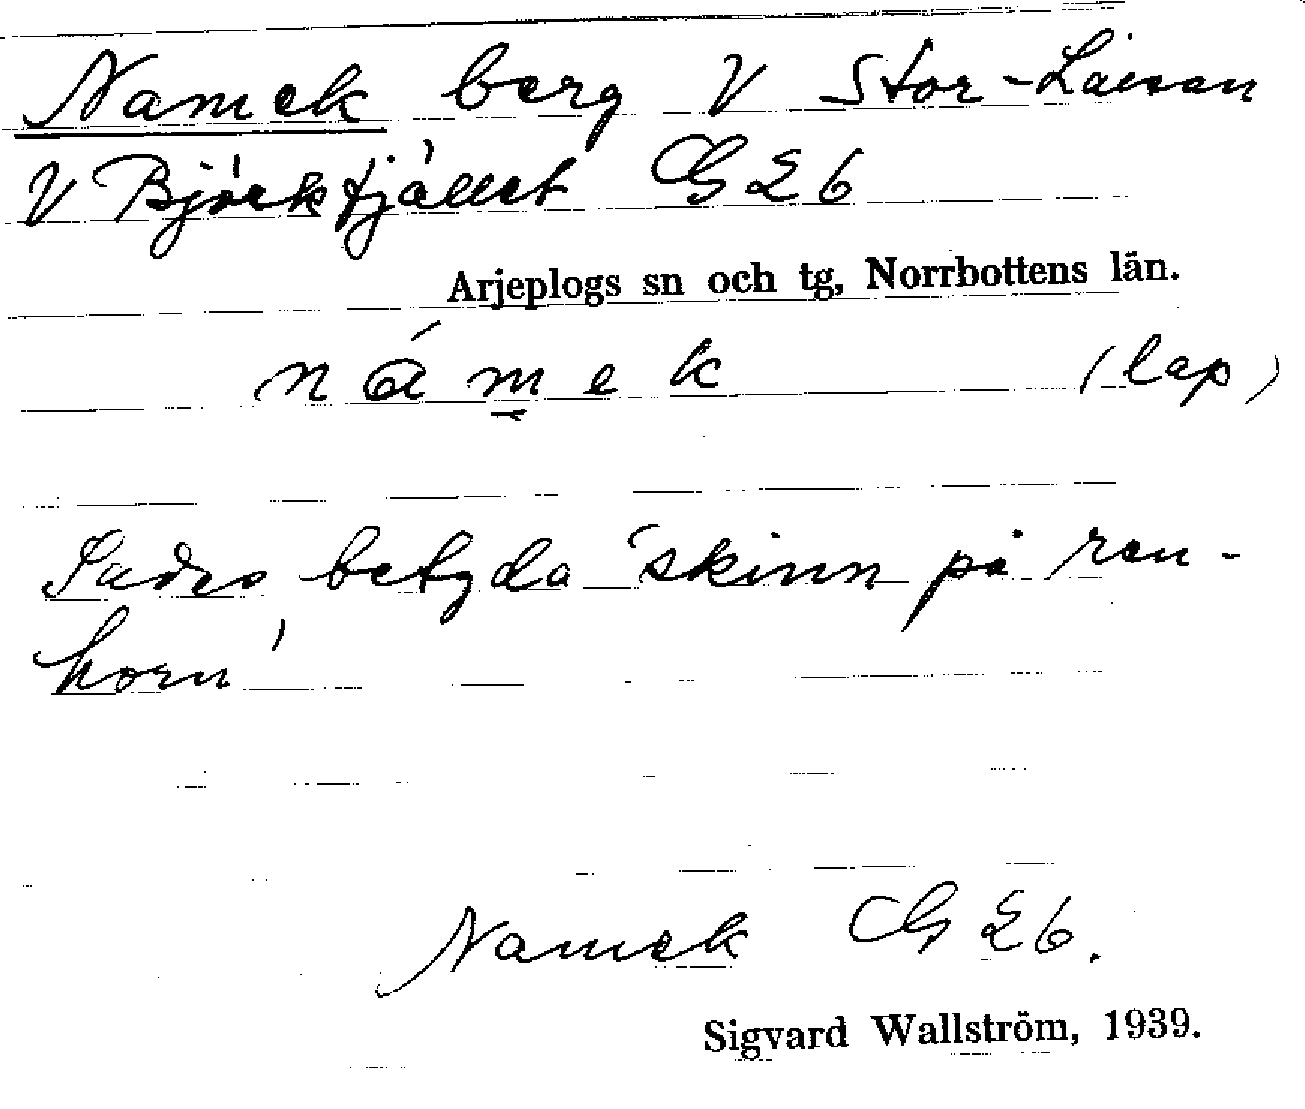 Namek berg V Stor-Laisan
V Björkfjället GG 26
Arjeplogs sn och tg, Norrbottens län.
námek (lap)
Sades betyda 'skinn på ren-
horn'
Namek GG 26.
Sigvard Wallström, 1939.